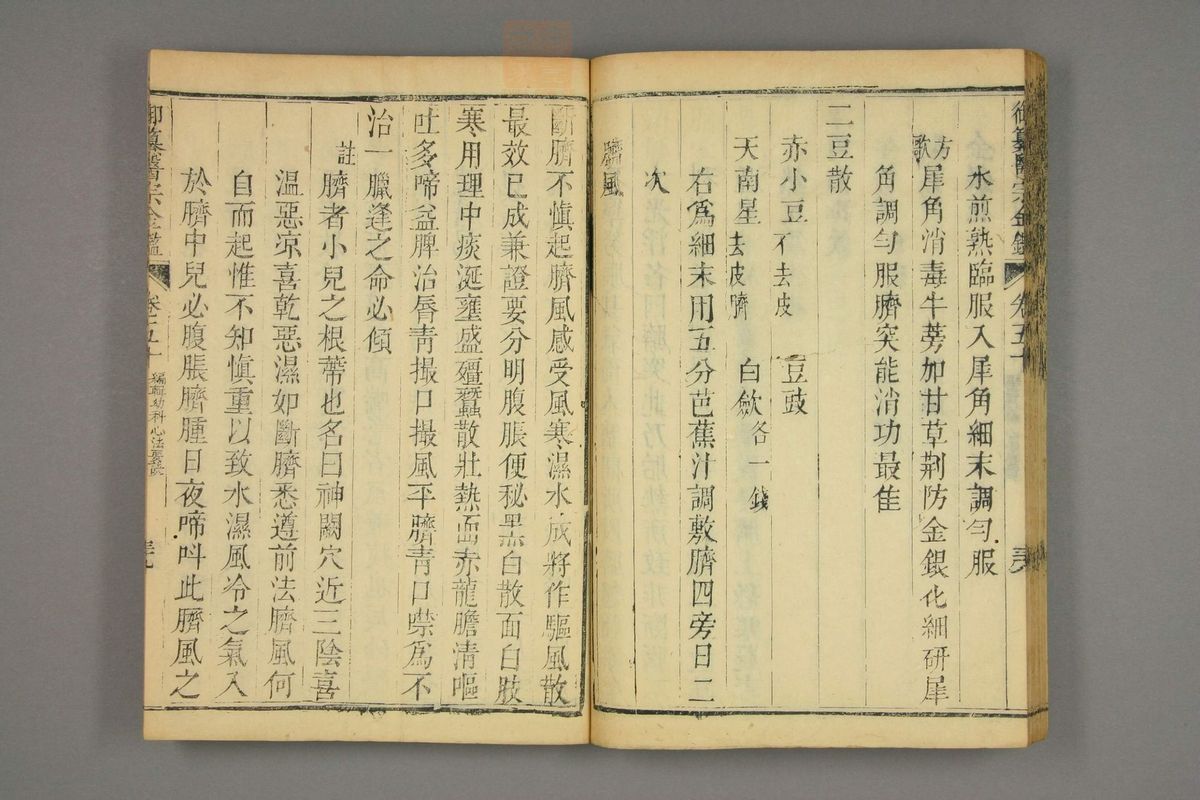 御纂醫宗金鑑 卷五十
水煎熟臨服入犀角細末調勻服
方歌 犀角消毒牛蒡加甘草荆防金銀化細研犀
角調勻服臍突能消功最隹
二豆散
赤小豆不去皮 豆豉
天南星去皮臍 白歛各一錢
右爲細末用五分芭蕉汁調敷臍四旁日二
次
臍風
斷臍不愼起臍風感受風寒濕水成將作驅風散
最效已成兼證要分明腹脹便秘黑白散面白肢
寒用理中痰涎壅盛殭蠶散壯熱面赤龍膽清嘔
吐多啼益脾治唇青撮口撮風平臍青口噤爲不
治一臘逢之命必傾
註 臍者小兒之根蒂也名曰神闕穴近三陰喜
溫惡凉喜乾惡濕如斷臍悉遵前法臍風何
自而起惟不知愼重以致水濕風冷之氣入
於臍中兒必腹脹臍腫日夜啼呌此臍風之
御纂醫宗金鑑 卷五十 編輯幼科心法要訣